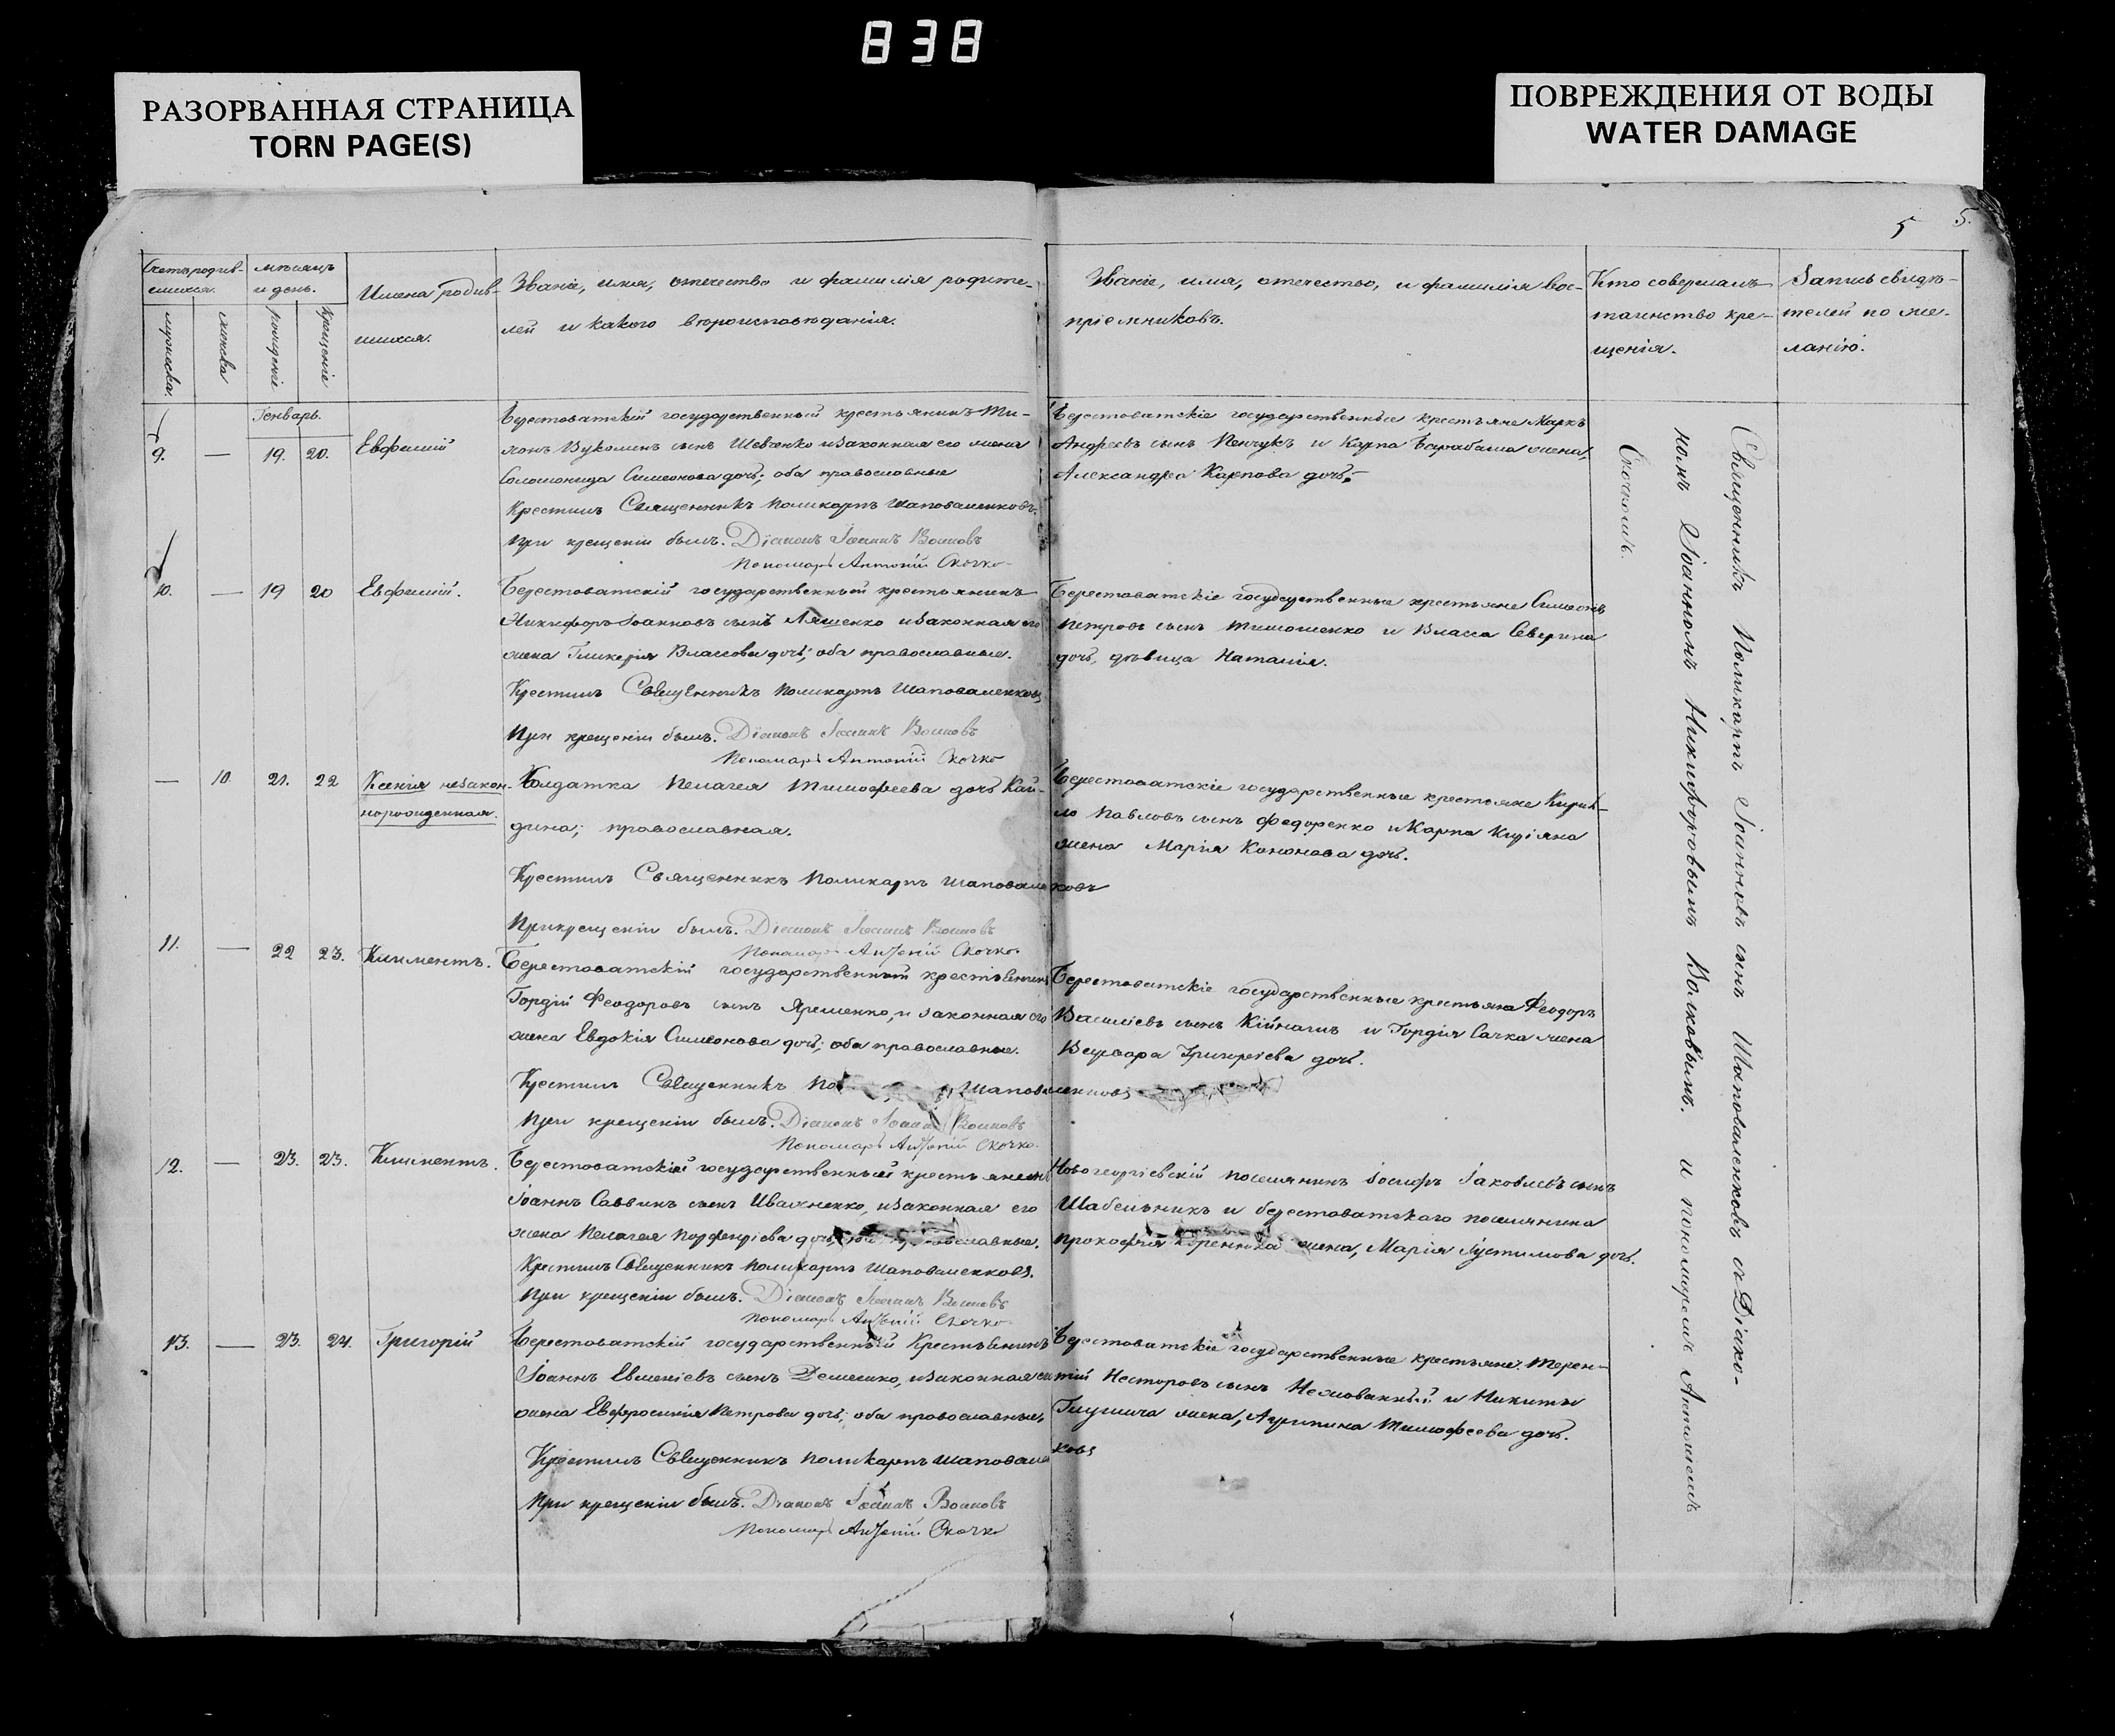 838
РАЗОРВАННАЯ СТРАНИЦА
TORN PAGE(S)
ПОВРЕЖДЕНИЯ ОТ ВОДЫ
WATER DAMAGE
5 5.
Счетъ родив-
шихся.
мужеска.
женска
мѣсяцъ
и день.
рожденіе
крещеніе
Имена родив-
шихся.
Званіе, имя, отечество и фамилія родите-
лей и какого вѣроисповѣданія.
Званіе, имя, отечество, и фамилія вос-
пріемниковъ.
Кто совершалъ
таинство кре-
щенія.
Запись свидѣ-
телей по же-
ланію.
Генварь.
9. — 19. 20. Евфимій
Берестоватскій государственный крестьянинъ Ти-
монъ Вуколинъ сынъ Шевченко и законная его жена
Соломонида Симеонова дочь; оба православные
Крестилъ Священникъ Поликарпъ Шаповаленковъ.
При крещеніи былъ. Діаконъ Іоаннъ Волковъ
Пономарь Антоній Скочко
Берестоватскіе государственные крестьяне Маркъ
Андреевъ сынъ Пенчукъ и Карпа Барабаша жена,
Александра Карпова дочь,
10. — 19 20 Евфимій.
Берестоватскій государственный крестьянинъ
Никифоръ Іоанновъ сынъ Ляшенко и законная его
жена Гликерія Власова дочь; оба православные.
Крестилъ Священникъ Поликарпъ Шаповаленковъ
При крещеніи былъ. Діаконъ Іоаннъ Волковъ
Пономарь Антоній Скочко
Берестоватскіе государственные крестьяне Симеонъ
Петровъ сынъ Тимошенко и Власа Северина
дочь, дѣвица Наталія.
— 10. 21. 22 Ксенія незакон-
норожденная.
Солдатка Пелагея Тимофеева дочь Кай-
дина; православная.
Крестилъ Священникъ Поликарпъ Шаповаленковъ
При крещеніи былъ. Діаконъ Іоаннъ Волковъ
Пономарь Антоній Скочко
Берестоватскіе государственные крестьяне Кирил-
ло Павловъ сынъ Федоренко и Карпа Куріяна
жена Марія Кононова дочь.
11. — 22 23. Климентъ.
Берестоватскій государственный крестьянинъ
Гордій Феодоровъ сынъ Яременко, и законная его
жена Евдокія Симеонова дочь; оба православные.
Крестилъ Священникъ По Шаповаленковъ
При крещеніи былъ. Діаконъ Іоаннъ Волковъ
Пономарь Антоній Скочко.
Берестоватскіе государственные крестьяне Феодоръ
Василіевъ сынъ Кійнашъ и Гордія Сачка жена
Варвара Григоріева дочь.
12. — 23. 23. Климентъ.
Берестоватскій государственный крестьянинъ
Іоаннъ Саввинъ сынъ Ивахненко, и законная его
жена Пелагея Порфиріева дочь, православные.
Крестилъ Священникъ Поликарпъ Шаповаленковъ.
При крещеніи былъ. Діаконъ Іоаннъ Волковъ
Пономарь Антоній Скочко
Новогеоргіевскій поселянинъ Іосифъ Іаковлевъ сынъ
Шабельникъ и берестоватскаго поселянина
Прокофія жена, Марія Іустимова дочь.
13. — 23. 24. Григорій
Берестоватскій государственный крестьянинъ
Іоаннъ Евменіевъ сынъ Демешко, и законная его
жена Евфросинія Петрова дочь; оба православные,
Крестилъ Священникъ Поликарпъ Шаповаленковъ
При крещеніи былъ. Діаконъ Іоаннъ Волковъ
Пономарь Антоній Скочко
Берестоватскіе государственные крестьяне: Терен-
тій Несторовъ сынъ Неживанный и Никиты
Глушича жена, Агрипина Тимофеева дочь.
Священникъ Поликарпъ Іоанновъ сынъ Шаповаленковъ съ Діако-
номъ Іоанномъ Никифоровымъ Волковымъ. и пономаремъ Антоніемъ
Скочкомъ.